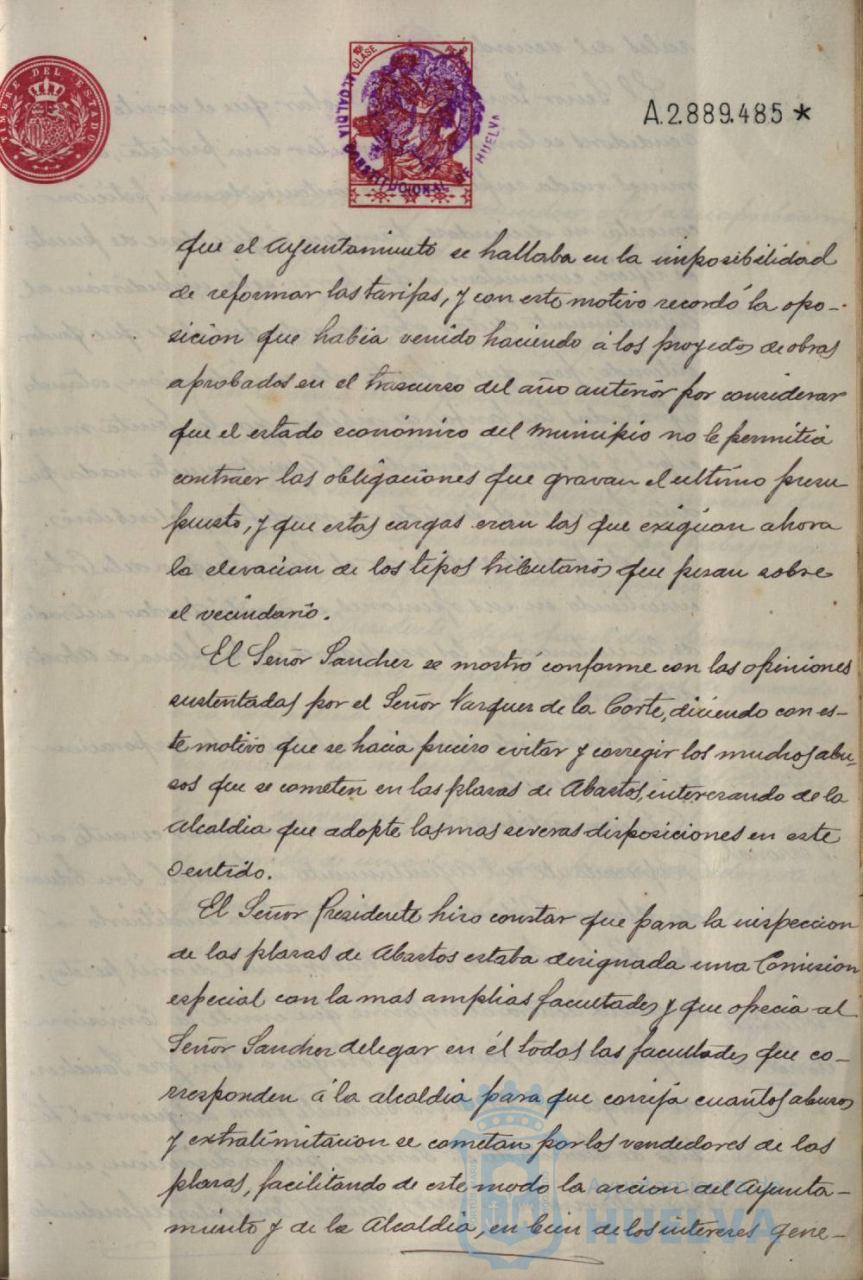 TIMBRE DEL ESTADO
10ª CLASE
ALCALDIA CONSTITUCIONAL DE HUELVA
A.2.889.485 *
que el Ayuntamiento se hallaba en la imposibilidad
de reformar las tarifas, y con este motivo recordó la opo-
sicion que habia venido haciendo á los proyectos de obras
aprobados en el trascurso del año anterior por considerar
que el estado económico del Municipio no le permitia
contraer las obligaciones que gravan el ultimo presu
puesto, y que estas cargas eran las que exigian ahora
la elevacion de los tipos tributarios que pesan sobre
el vecindario.
El Señor Sanchez se mostró conforme con las opiniones
sustentadas por el Señor Vazquez de la Corte, diciendo con es-
te motivo que se hacia preciso evitar y corregir los muchos abu-
sos que se cometen en las plazas de Abastos, interesando de la
Alcaldia que adopte las mas severas disposiciones en este
sentido.
El Señor Presidente hizo constar que para la inspeccion
de las plazas de Abastos estaba designada una Comision
especial con la mas amplias facultades y que ofrecia al
Señor Sanchez delegar en él todas las facultades que co-
rresponden á la alcaldia para que corrija cuantos abusos
y extralimitacion se cometan por los vendedores de las
plazas, facilitando de este modo la accion del Ayunta-
miento y de la Alcaldia, en bien de los intereses gene-
HUELVA